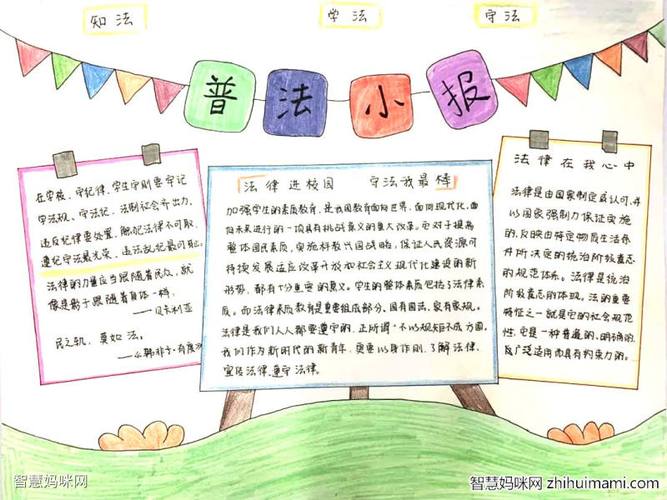 知法
学法
守法
普法小报
在学校、守纪律、学生守则要守记
学法规、守法记、法制社会齐出力、
违反纪律要处置、触犯法律不可取、
遵纪守法最光荣、违法乱纪最可耻。
法律的力量应当跟随着民众,就
像是影子跟随着身体一样。
——贝卡利亚
民之轨,莫如法。
——《韩非子·有度
法律进校园 守法我最棒
加强学生的素质教育,是我国教育面向世界、面向现代化、面
向未来进行的一项具有挑战意义的重大改革。它对于提高
整体国民素质,实施科教兴国战略,保证人民资源可
持续发展适应改革开放和社会主义现代化建设的新
形势,都有十分重要的意义。学生的整体素质包括了法律素
质。而法律素质教育是重要组成部分、国有国法,家有家规。
法律是我们人人都要遵守的、正所谓"不以规矩不成方圆、
我们作为新时代的新青年、更要以身作则、了解法律、
宣传法律、遵守法律。
法律在我心中
法律是由国家制定或认可、并
以国家强制力保证实施
的、反映由特定物质生活条
件所决定的统治阶级意志
的规范体系。法律是统治
阶级意志的体现。法的重要
特征之一就是它的社会规范
性、它是一种普遍的、明确的、
及广泛适用而具有约束力的。
智慧妈咪网
智慧妈咪网 zhihuimami.com